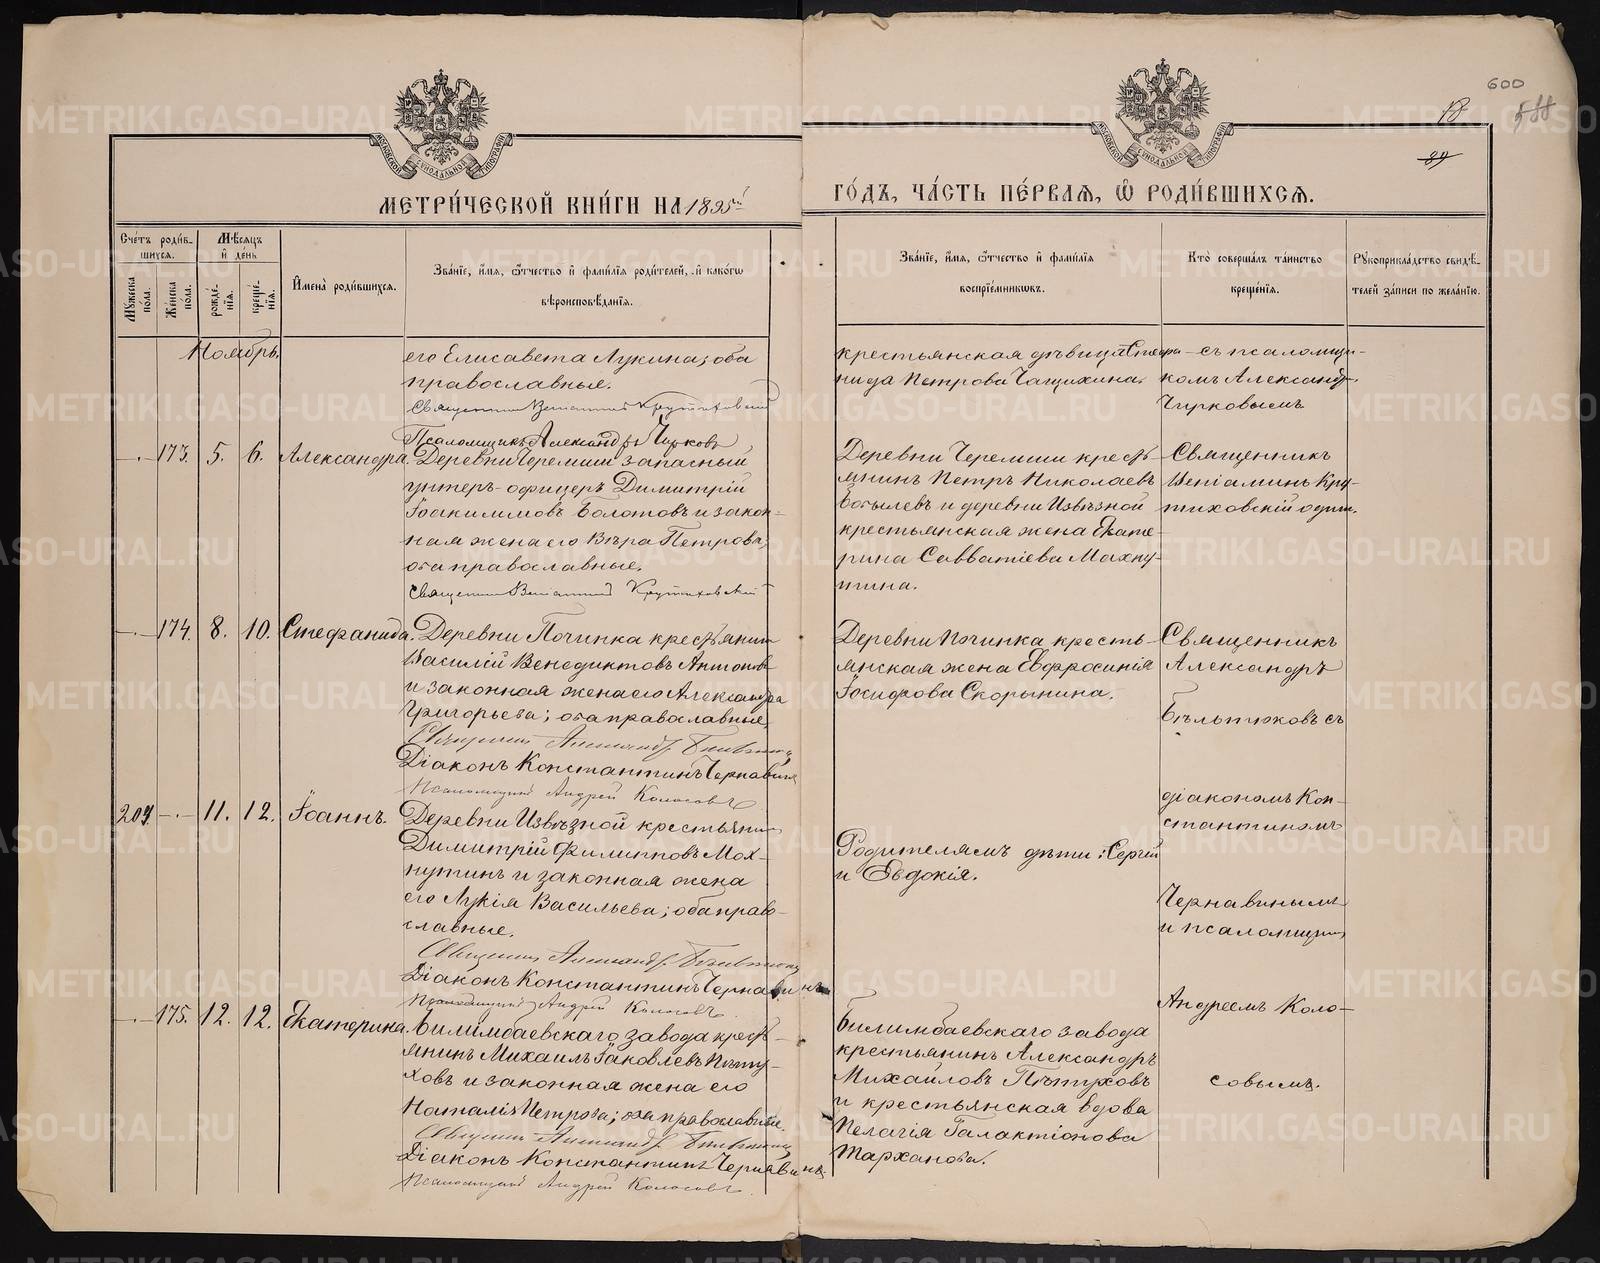 600
588
89
МЕТРИ́ЧЕСКОЙ КНИ́ГИ НА 1895й
ГО́ДЪ, ЧА́СТЬ ПЕ́РВАЯ, Ѡ РОДИ́ВШИХСЯ.
Сче́тъ роди́в-
шихся.
Мѣ́сяцъ
и де́нь
Му́жеска
по́ла.
Же́нска
по́ла.
рожде́-
нїя.
креще́-
нїя.
Имена̀ роди́вшихся.
Зва́нїе, и́мя, ѻ҆́тчество и҆ фами́лїя роди́телей, и҆ како́гѡ
вѣроисповѣ́данїя.
Зва́нїе, и́мя, ѻ҆́тчество и҆ фами́лїя
воспрїе́мниковъ.
Кто̀ соверша́лъ та́инство
креще́нїя.
Рукоприкла́дство свидѣ́-
телей за́писи по жела́нїю.
Ноябрь.
его Елисавета Лукина; оба
православные.
Священникъ Веніаминъ Крутиховскій
Псаломщикъ Александръ Чирковъ
крестьянская дѣвица Стефа-
нида Петрова Чащихина.
съ псаломщи-
комъ Александр.
Чирковымъ
—.— 173. 5. 6. Александра.
Деревни Черемши запасный
унтеръ-офицеръ Димитрій
Іоакимовъ Болотовъ и закон-
ная жена его Вѣра Петрова;
оба православные.
Священникъ Веніаминъ Крутиховскій
Деревни Черемши кресть-
янинъ Петръ Николаевъ
и деревни Извѣзной
крестьянская жена Екате-
рина Савватіева Махну-
тина.
Священникъ
Веніаминъ Кру-
тиховскій одинъ.
—.— 174. 8. 10. Стефанида.
Деревни Починка крестьянинъ
Василій Венедиктовъ Антоновъ
и законная жена его Александра
Григорьева; оба православные
Священникъ Александръ Бѣльтюковъ
Діаконъ Константинъ Чернавинъ
Псаломщикъ Андрей Колосовъ
Деревни Починка кресть-
янская жена Евфросинія
Іосифова Скорынина.
Священникъ
Александръ
Бѣльтюковъ съ
209. —.— 11. 12. Іоаннъ.
Деревни Извѣзной крестьянинъ
Димитрій Филипповъ Мох-
нутинъ и законная жена
его Лукія Васильева; оба право-
славные.
Священникъ Александръ Бѣльтюковъ
Діаконъ Константинъ Чернавинъ
Псаломщикъ Андрей Колосовъ
Родителямъ дѣти: Сергій
и Евдокія.
діакономъ Кон-
стантиномъ
Чернавинымъ
и псаломщик.
—.— 175. 12. 12. Екатерина.
Билимбаевскаго завода кресть-
янинъ Михаилъ Іаковлевъ Пѣту-
ховъ и законная жена его
Наталія Петрова; оба православные.
Священникъ Александръ Бѣльтюковъ
Діаконъ Константинъ Чернавинъ
Псаломщикъ Андрей Колосовъ
Билимбаевскаго завода
крестьянинъ Александръ
Михайловъ Пѣтуховъ
и крестьянская вдова
Пелагія Галактіонова
Тарханова.
Андреемъ Коло-
совымъ.
METRIKI.GASO-URAL.RU